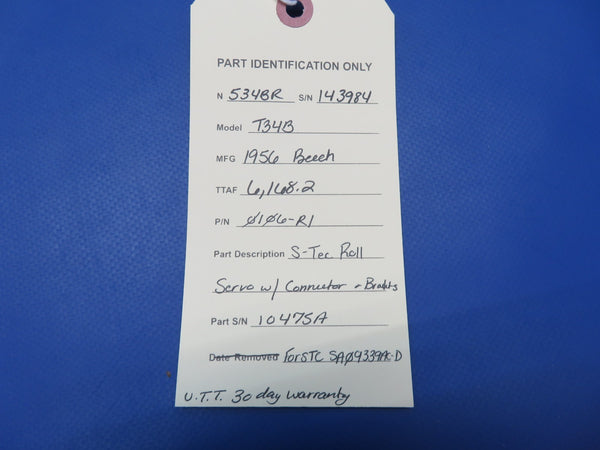 PART IDENTIFICATION ONLY
N 534BR S/N 143984
Model T34B
MFG 1956 Beech
TTAF 6,168.2
P/N 0106-R1
Part Description S-Tec Roll
Servo w/ Connector +
Part S/N 10475A
Date Removed For STC SA09339AC-D
U.T.T. 30 day warranty